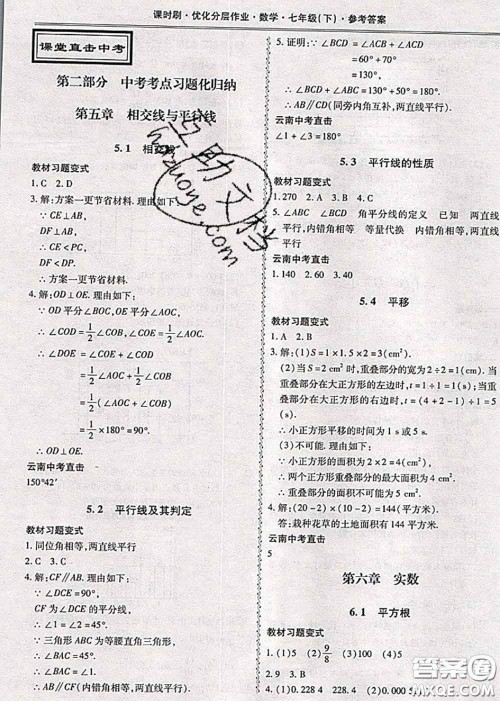 课时刷·优化分层作业·数学·七年级(下)·参考答案
课堂直击中考
第二部分 中考考点习题化归纳
第五章 相交线与平行线
5.1 相交线
教材习题变式
1. C 2. D
3. 解:方案一更节省材料. 理由如下:
∵CE⊥AB,
DF⊥AB,
∴CE<PC,
DF<PD.
∴方案一更节省材料.
4. 解:OD⊥OE. 理由如下:
∵OD平分∠BOC,OE平分∠AOC,
∴∠COD=1/2∠COB,∠COE=1/2∠AOC,
∴∠DOE=∠COE+∠COD
=1/2∠AOC+1/2∠COB
=1/2(∠AOC+∠COB)
=1/2×180°=90°.
∴OD⊥OE.
云南中考直击
150°42′
5.2 平行线及其判定
教材习题变式
1. 同位角相等,两直线平行
2. C 3. C
4. 解:CF∥AB. 理由如下:
∵∠DCE=90°,
CF为∠DCE的平分线,
∴∠1=∠2=45°.
∵三角形ABC为等腰直角三角形,
∴∠BAC=45°.
∴∠BAC=∠1.
∴AB∥CF(内错角相等,两直线平行).
5. 证明:∵∠BCD=∠ACB+∠ACD
=60°+70°
=130°,
∴∠ABC+∠BCD=50°+130°
=180°.
∴AB∥CD(同旁内角互补,两直线平行).
云南中考直击
∠1+∠3=180°
5.3 平行线的性质
教材习题变式
1. 270 2. A 3. B 4. A
5. ∠ABC ∠BCD 角平分线的定义 已知 两直线
平行,内错角相等 等量代换 内错角相等,两直线
平行
云南中考直击
1. 140 2. 60 3. 40
5.4 平移
教材习题变式
1. A 2. B
3. 解:(1)S=1×1.5×2=3(cm²).
(2)当S=2 cm²时,重叠部分的宽为2÷2=1(cm).当
重叠部分在大正方形的左边时,t=1÷1=1(s);当
重叠部分在大正方形的右边时,t=(4+2-1)÷1=5
(s).
∴小正方形平移的时间为1 s或5 s.
(3)∵小正方形的面积为2×2=4(cm²),
∴两个正方形重叠部分的最大面积为4 cm².
∴小正方形的面积为4 cm².
4. 解:(20-2)×(10-2)=144(平方米).
答:栽种花草的土地面积有144平方米.
云南中考直击
5
第六章 实数
6.1 平方根
教材习题变式
1. (1)5 (2)9/8 (3)100 (4)5
2. B 3. A
4. (1)0.228 4 228.4 (2)0.000 5
答案圈
MXQE.COM